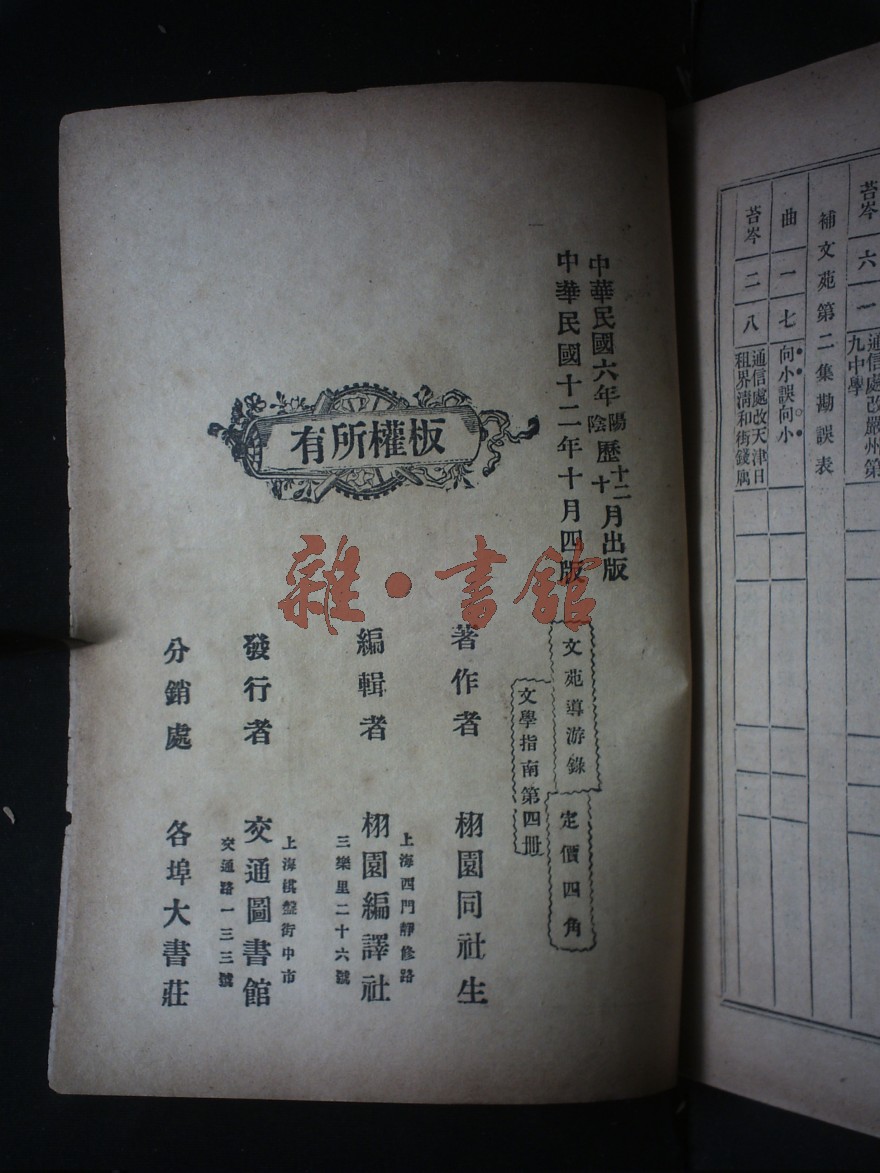 苔岑 六 一 通信處改嚴州第九中學
補文苑第二集勘誤表
曲 一 七 向小誤向小
苔岑 二 八 通信處改天津日租界淸和街錢寓
中華民國六年陽陰歷十二十月出版
中華民國十二年十月四版
文苑導游錄 定價四角
文學指南第四册
板權所有
著作者 栩園同社生
上海西門靜修路
三樂里二十六號
編輯者 栩園編譯社
上海棋盤街中市
交通路一三三號
發行者 交通圖書館
分銷處 各埠大書莊
雜·書館